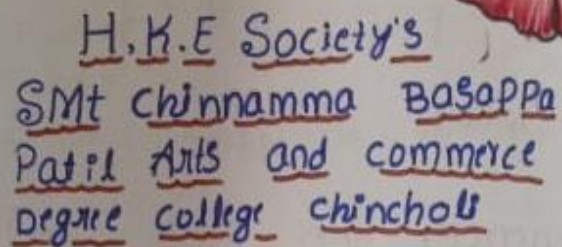 H.K.E Society's
SMt Chinnamma Basappa
Patil Arts and commerce
Degree College Chincholi